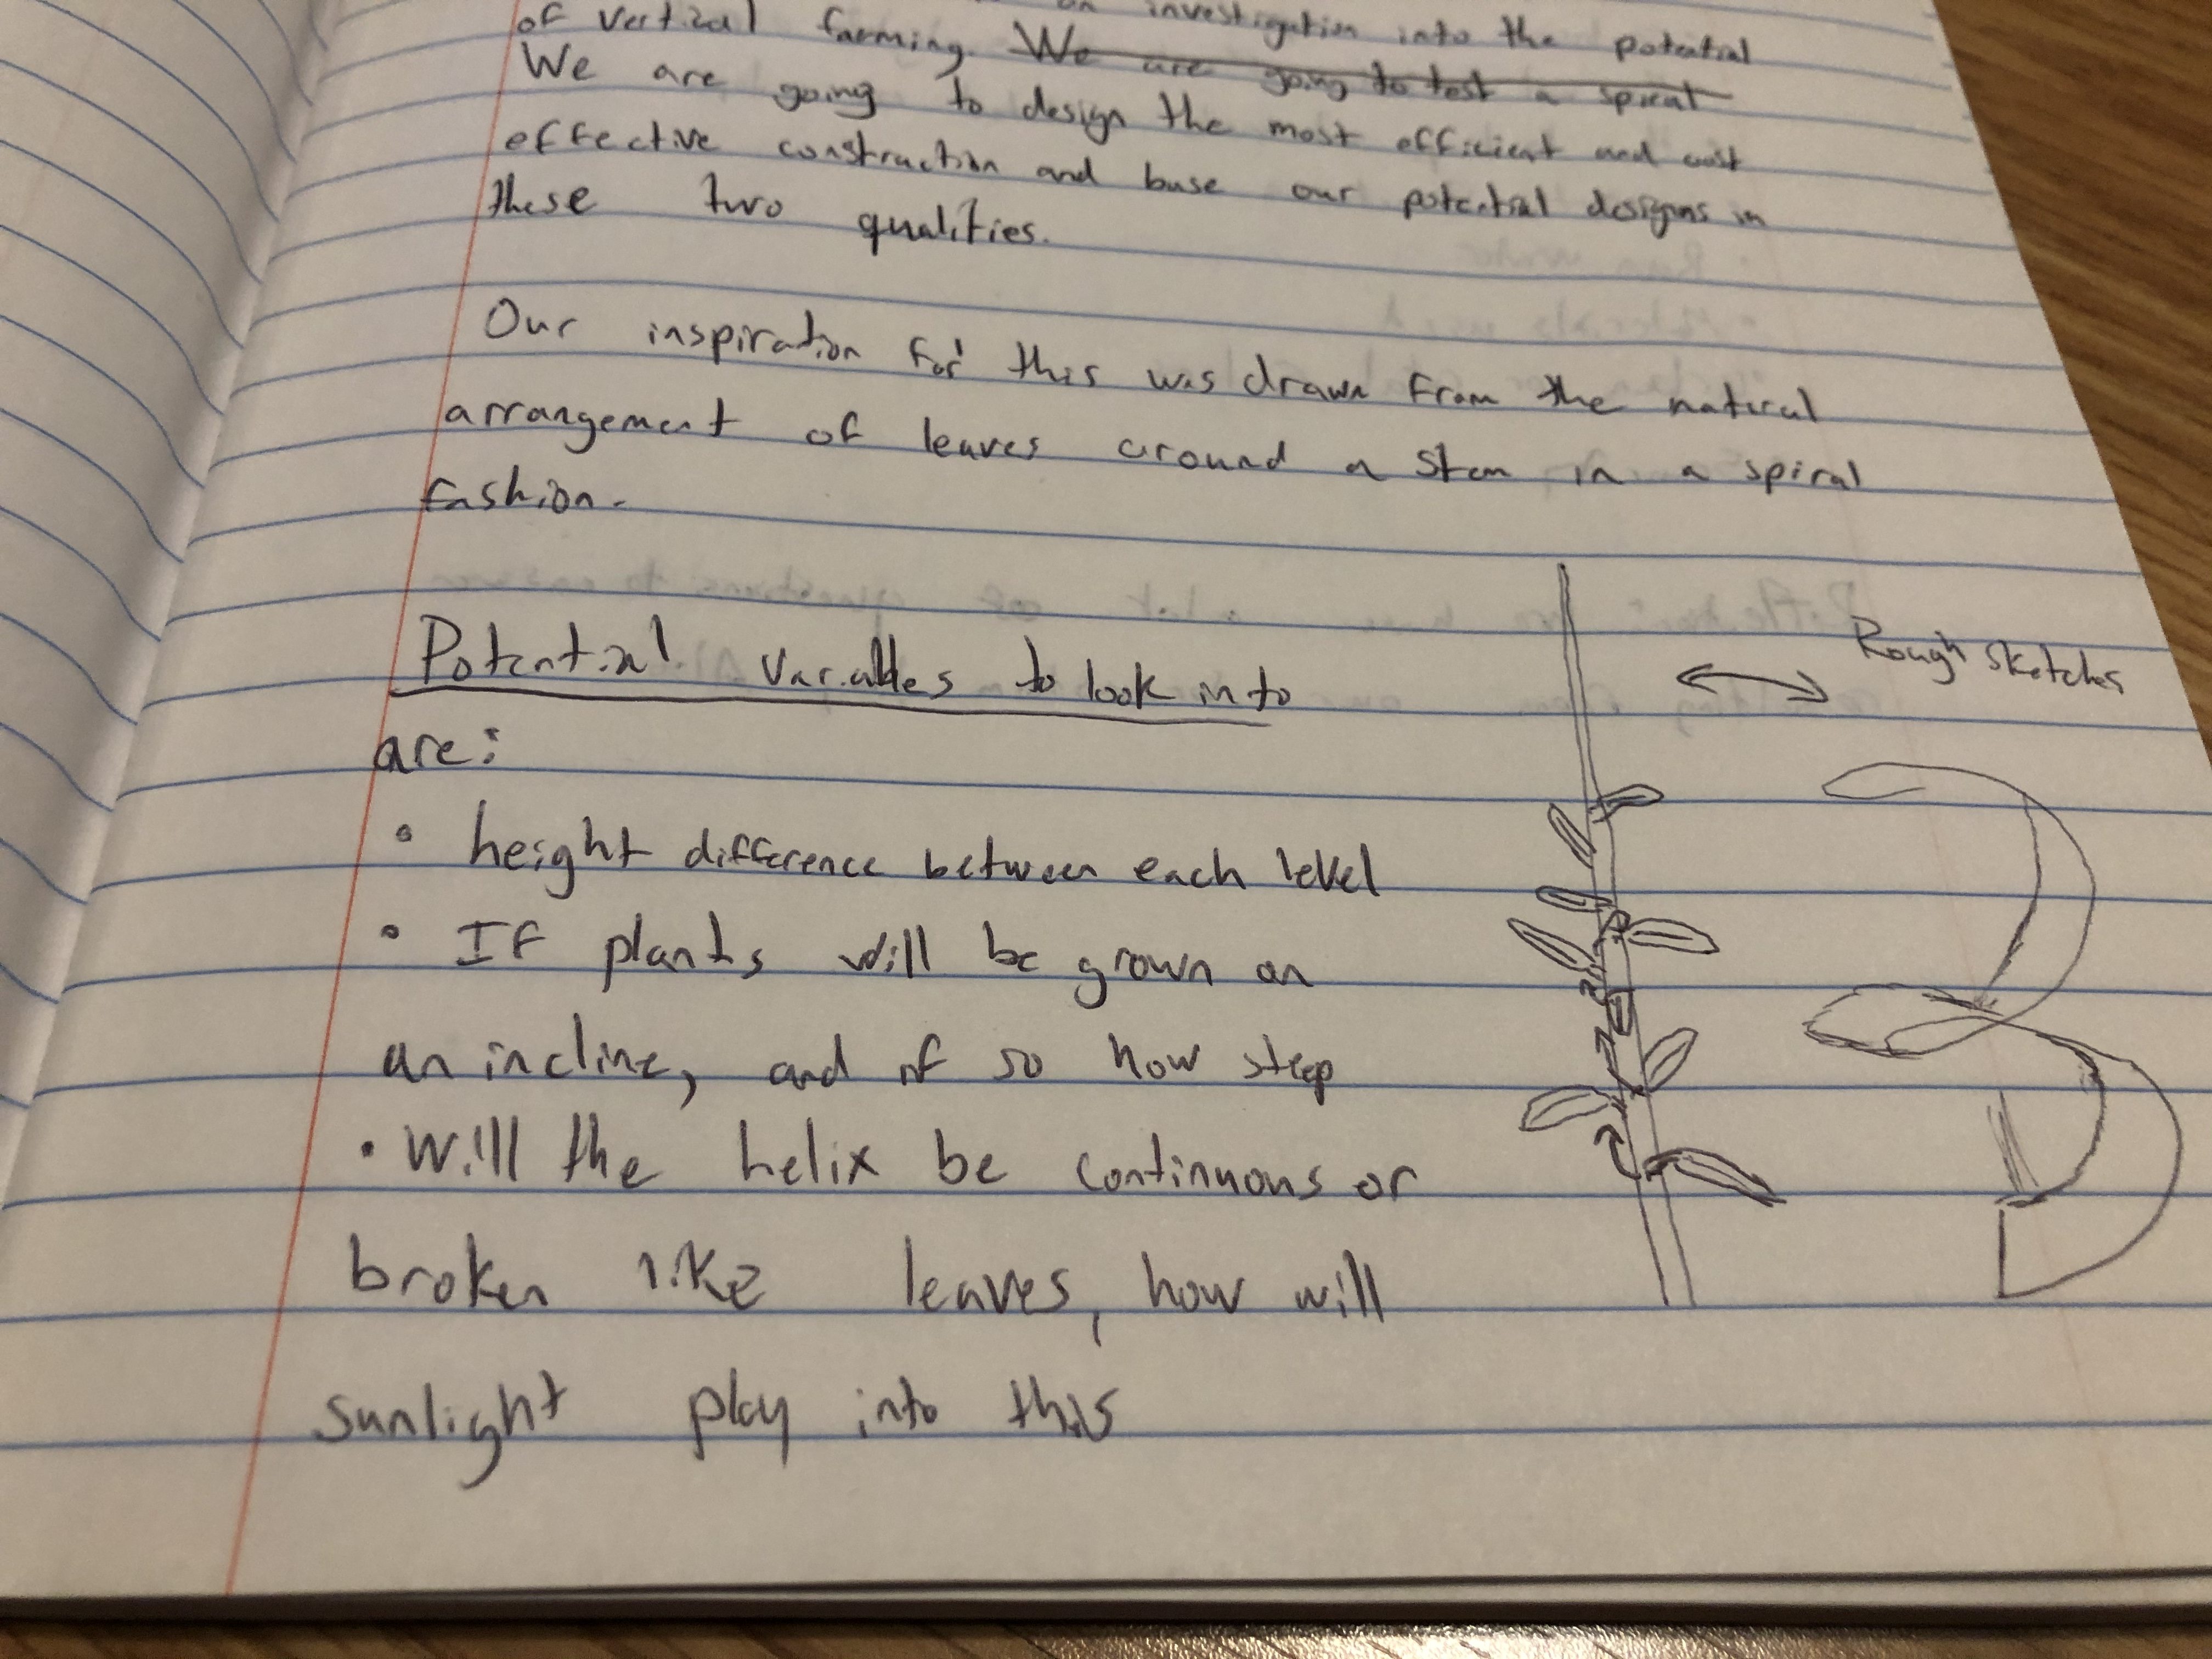 on investigation into the potential
of vertical farming. We are going to test a spiral
We are going to design the most efficient and cost
effective construction and base our potential designs in
these two qualities.
Our inspiration for this was drawn from the natural
arrangement of leaves around a stem in a spiral
fashion.
Potential variables to look into
are:
Rough sketches
• height difference between each level
• If plants will be grown on
an incline, and if so how steep
• Will the helix be continuous or
broken like leaves, how will
sunlight play into this